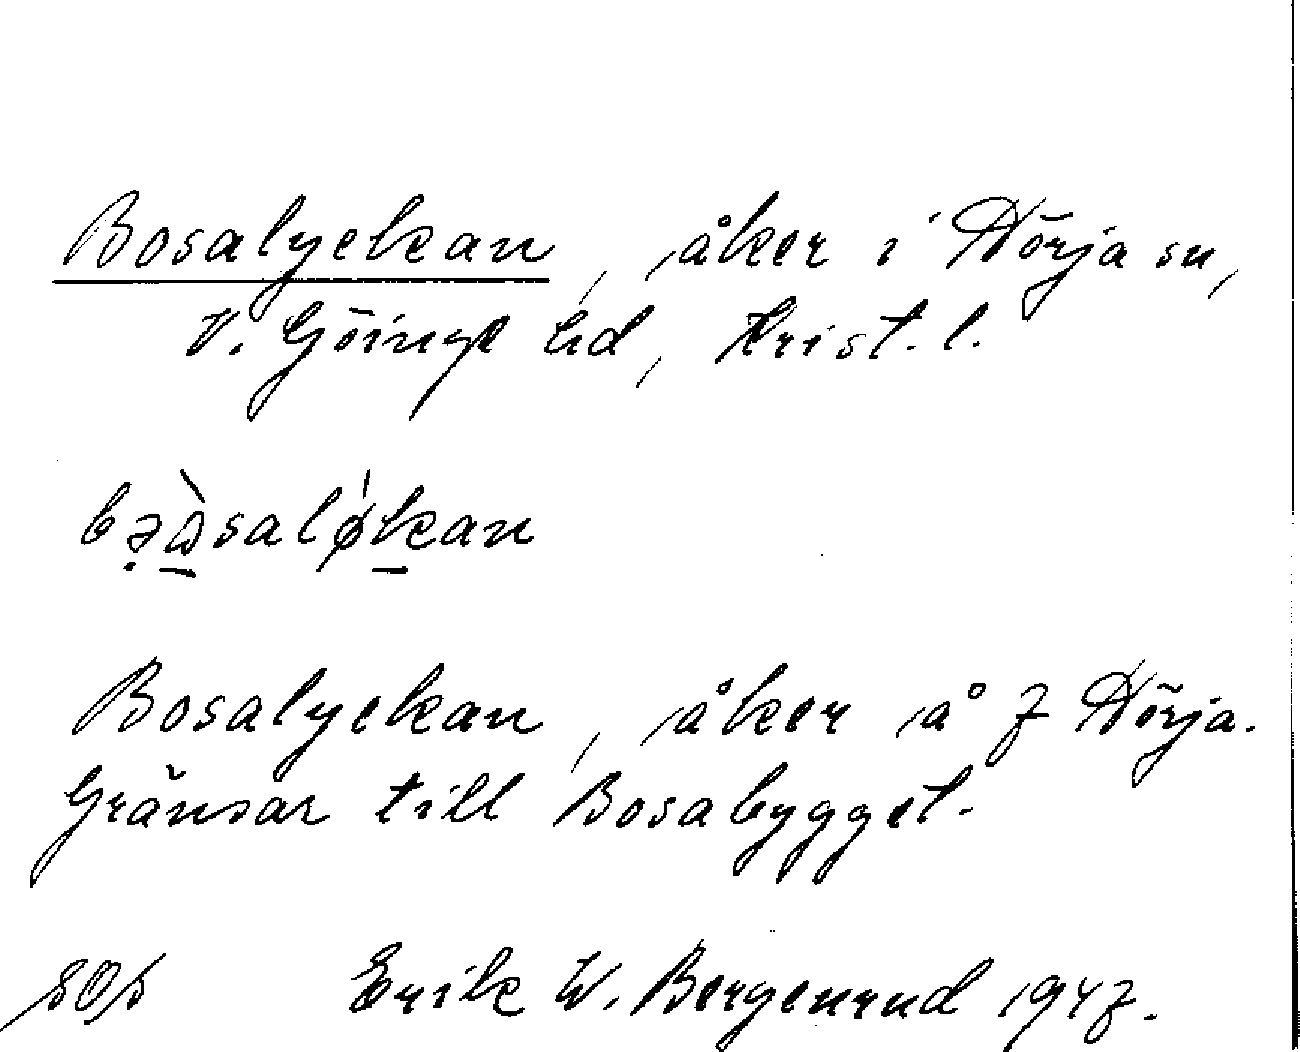 Bosalyckan, åker i Nörja sn,
V. Göinge hd, Krist. l.
bəὼsaløkan
Bosalyckan, åker å 7 Nörja.
Gränsar till Bosabygget.
Erik W. Bergenrud 1947.